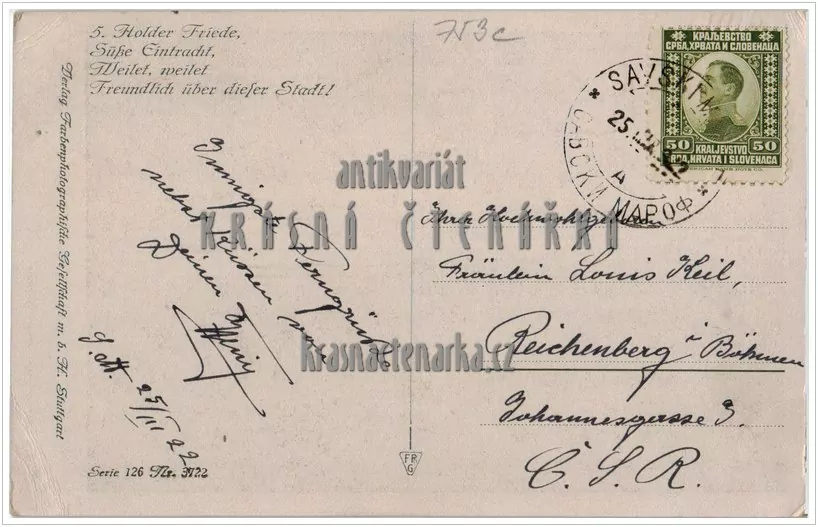 5. Holder Friede,
Süße Eintracht,
Weilet, weilet
Freundlich über dieser Stadt!
Verlag Farbenphotographische Gesellschaft m. b. H. Stuttgart
Serie 126 Nr. 3122
753c
КРАЉЕВСТВО
СРБА, ХРВАТА И СЛОВЕНАЦА
50 50
KRALJEVSTVO
SRBA, HRVATA I SLOVENACA
SAVSKI M
САВСКИ МАРОФ
25.
A
Innigste Ferngrüße
nebst Küssen von
Deinem
S. M. 25/III 22.
FRG
Ihrer Hochwohlgeboren
Fräulein Louis Keil,
Reichenberg i Böhmen
Johannesgasse 3.
Č. S. R.
antikvariát
KRÁSNÁ ČTENÁŘKA
krasnactenarka.cz